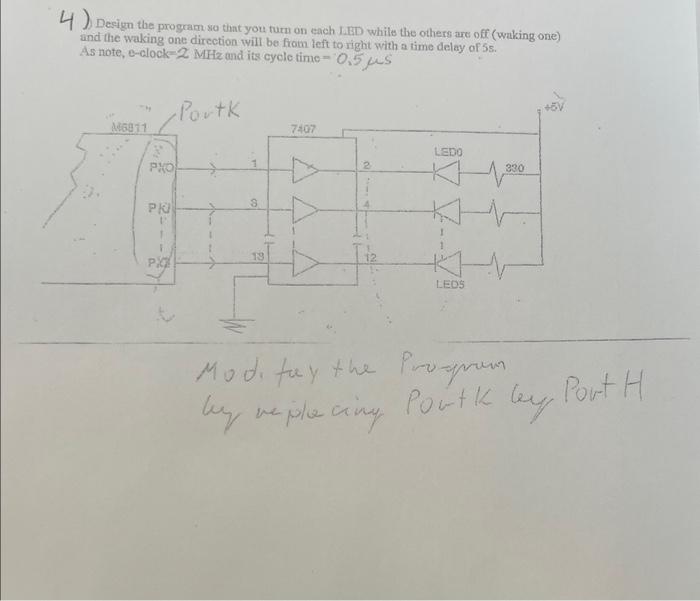 4) Design the program so that you turn on each LED while the others are off (waking one)
and the waking one direction will be from left to right with a time delay of 5s.
As note, e-clock=2 MHz and its cycle time = 0.5 µs
PortK
+5V
M6811
7407
LED0
PK0
1
2
330
PK1
3
4
13
12
LED5
Modifuy the Program
by replacing PortK by Port H